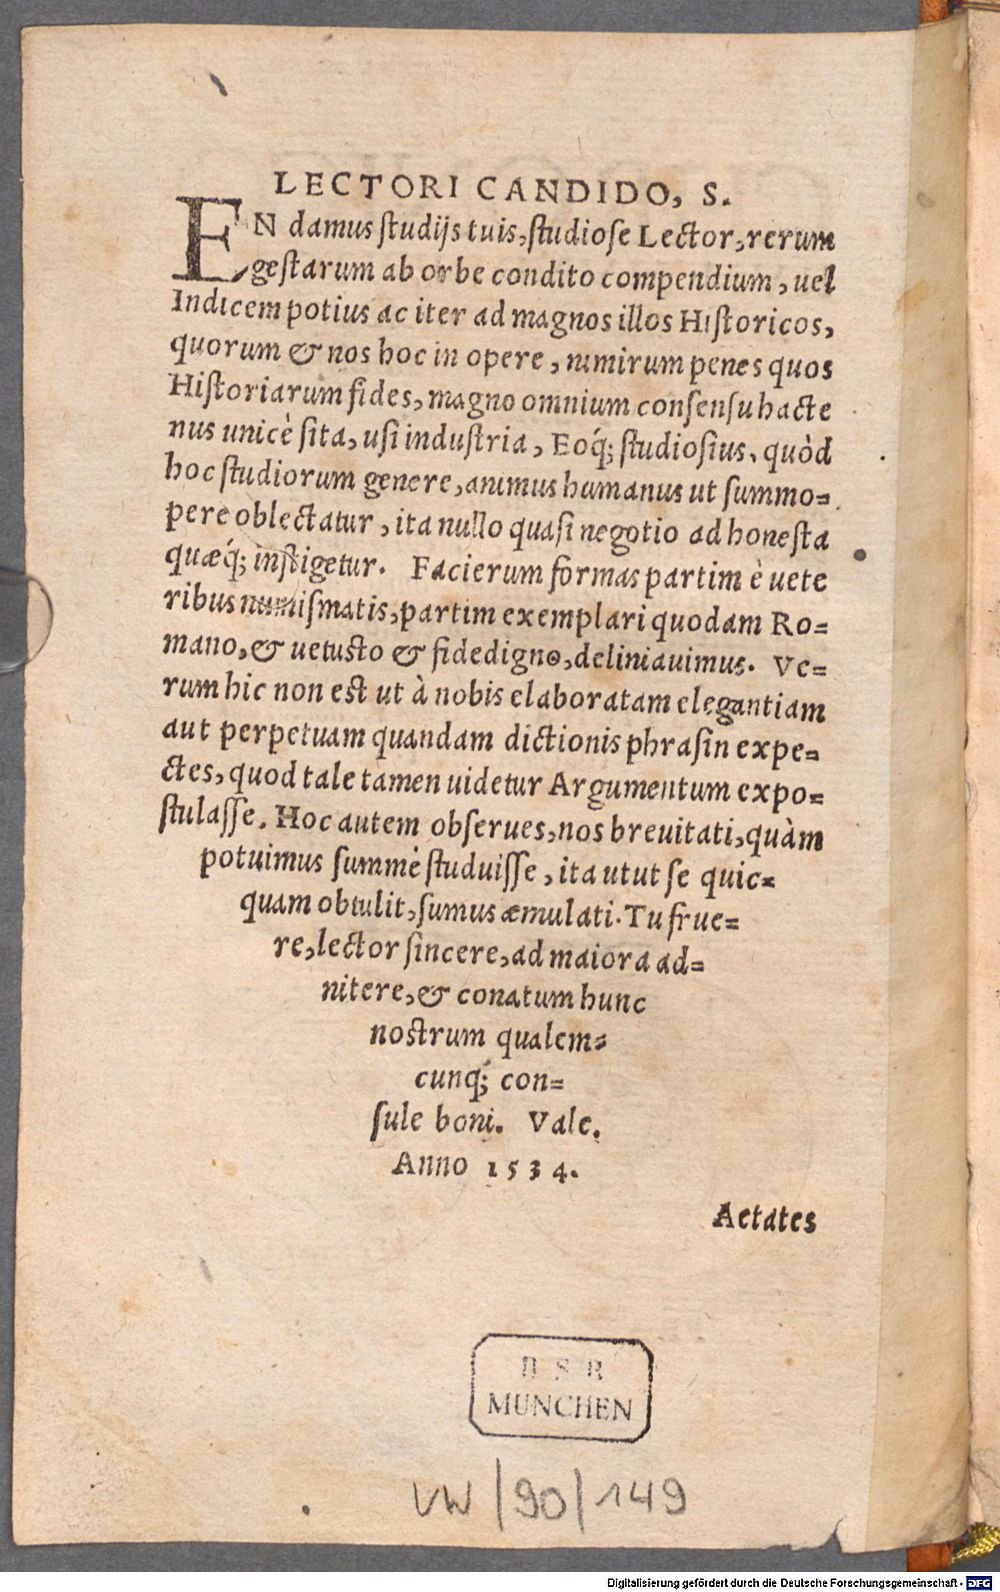 LECTORI CANDIDO, S.
EN damus studijs tuis, studiose Lector, rerum
gestarum ab orbe condito compendium, uel
Indicem potius ac iter ad magnos illos Historicos,
quorum & nos hoc in opere, nimirum penes quos
Historiarum fides, magno omnium consensu hacte
nus unicè sita, usi industria, Eoq́; studiosius, quòd
hoc studiorum genere, animus humanus ut summo=
pere oblectatur, ita nullo quasi negotio ad honesta
quæq́; instigetur. Facierum formas partim è uete
ribus numismatis, partim exemplari quodam Ro=
mano, & uetusto & fidedigno, deliniauimus. Ve=
rum hic non est ut à nobis elaboratam elegantiam
aut perpetuam quandam dictionis phrasin expe=
ctes, quod tale tamen uidetur Argumentum expo=
stulasse. Hoc autem obserues, nos breuitati, quàm
potuimus summè studuisse, ita utut se quic=
quam obtulit, sumus æmulati. Tu frue=
re, lector sincere, ad maiora ad=
nitere, & conatum hunc
nostrum qualem=
cunq́; con=
sule boni. Vale.
Anno 1534.
Aetates
B S B
MÜNCHEN
VW/90/149
Digitalisierung gefördert durch die Deutsche Forschungsgemeinschaft - DFG